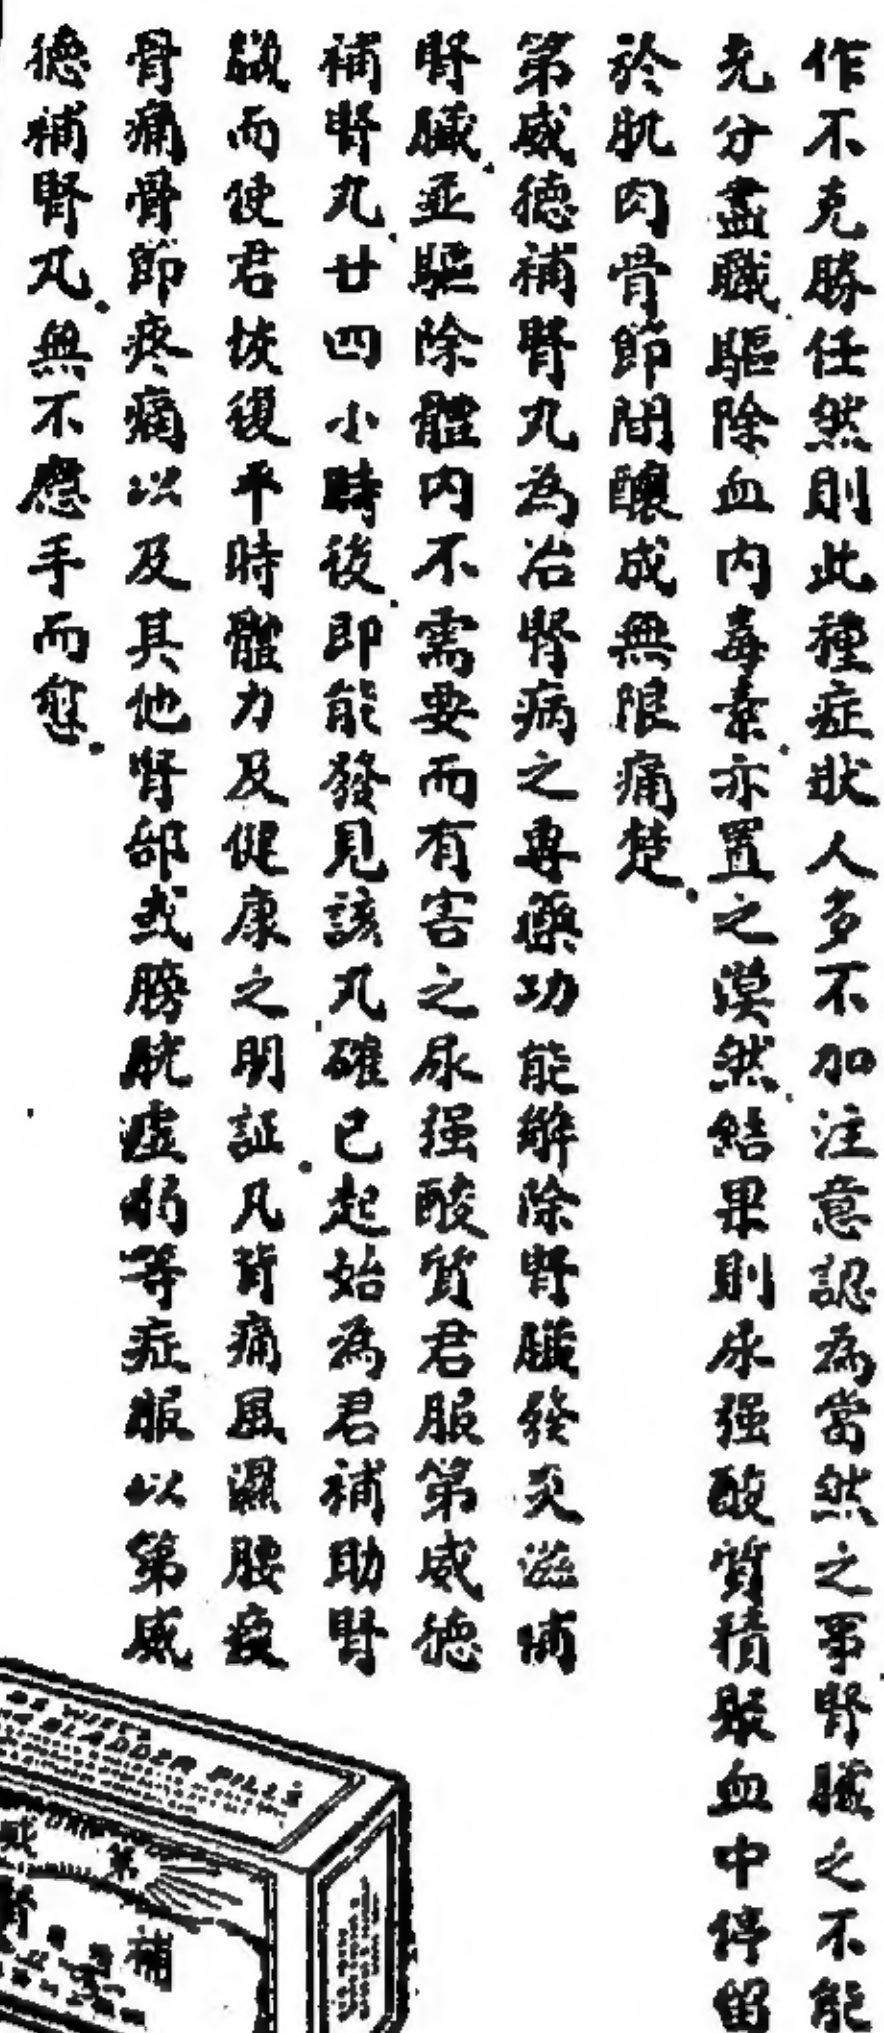 作不克勝任然則此種症狀人多不加注意認為當然之事腎臟之不能
充分盡職驅除血内毒素亦置之漠然結果則尿强酸質積聚血中停留
於肌肉骨節間釀成無限痛楚
第威德補腎丸為治腎病之專藥功能解除腎臟發炎滋補
腎臟並驅除體内不需要而有害之尿强酸質君服第威德
補腎丸廿四小時後即能發見該丸確已起始為君補助腎
臟而使君恢復平時體力及健康之明証凡背痛風濕腰痠
骨痛骨節疼痛以及其他腎部或膀胱虚弱等症服以第威
德補腎丸無不應手而愈
DE WITT'S
BLADDER PILLS
威 第
腎 補